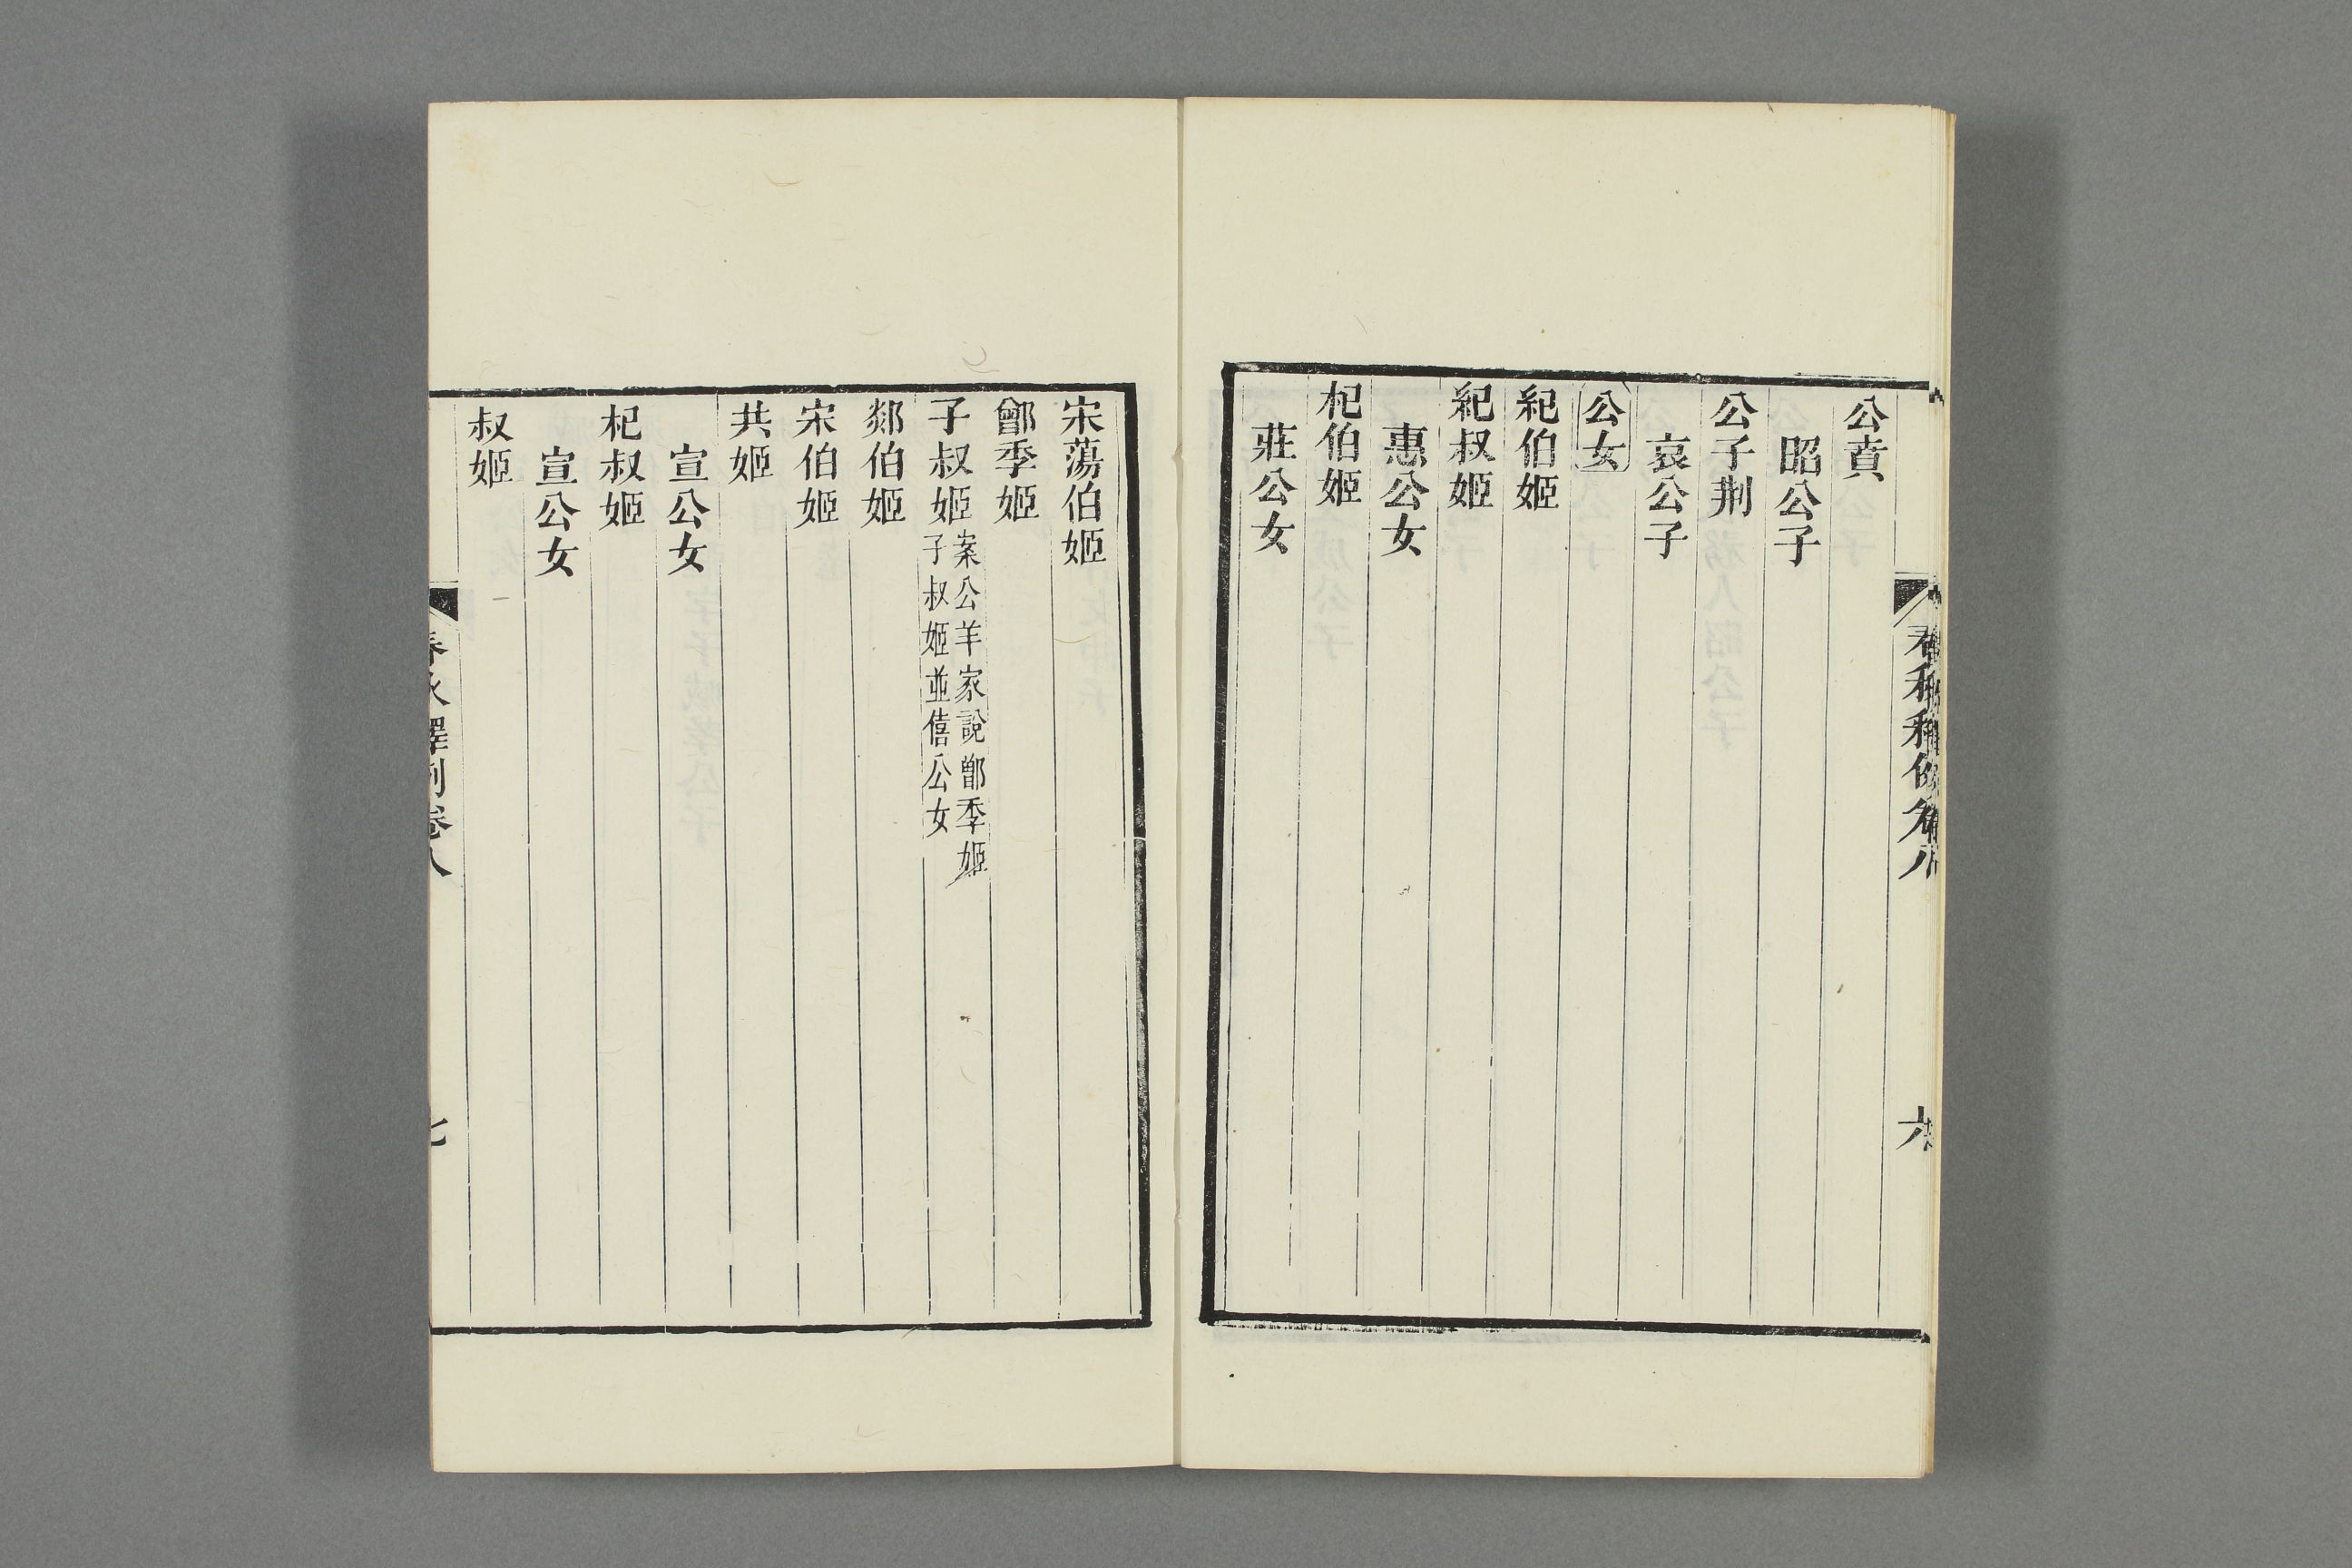 公賁
昭公子
公子荆
哀公子
公女
紀伯姬
紀叔姬
惠公女
杞伯姬
莊公女
六
宋蕩伯姬
鄫季姬
子叔姬案公羊家說鄫季姬
子叔姬並僖公女
郯伯姬
宋伯姬
共姬
宣公女
杞叔姬
宣公女
叔姬
春秋釋例卷八
七